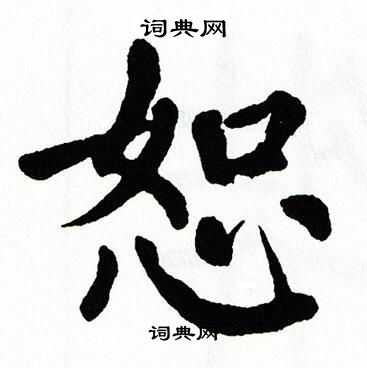 词典网
恕
词典网